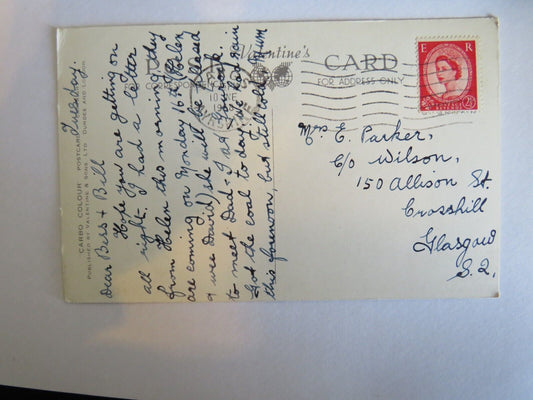 CARBO COLOUR POSTCARD
PUBLISHED BY VALENTINE & SONS, LTD. DUNDEE AND LONDON
Valentine's
CARD
FOR ADDRESS ONLY
E R
2½
POSTAGE REVENUE
Tuesday.
Dear Bess & Bill
Hope you are getting on
all right. I had a letter
from Helen this morning. They
are coming on Monday 16th (Helen
& wee David) she will be pleased
to meet Dad & I next week.
Got the coal to day. We had rain
this forenoon, but still cold. Mum
Mrs E. Parker,
C/o Wilson,
150 Allison St.
Crosshill
Glasgow
S.2.